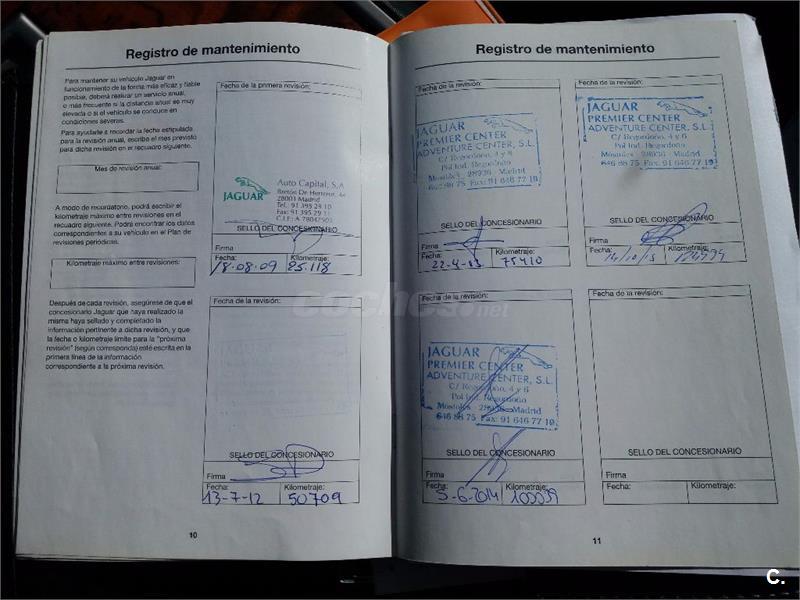 Registro de mantenimiento
Para mantener su vehículo Jaguar en
funcionamiento de la forma más eficaz y fiable
posible, deberá realizar un servicio anual,
o más frecuente si la distancia anual es muy
elevada o si el vehículo se conduce en
condiciones severas.
Para ayudarle a recordar la fecha estipulada
para la revisión anual, escriba el mes previsto
para dicha revisión en el recuadro siguiente.
Mes de revisión anual:
A modo de recordatorio, podrá escribir el
kilometraje máximo entre revisiones en el
recuadro siguiente. Podrá encontrar los datos
correspondientes a su vehículo en el Plan de
revisiones periódicas.
Kilometraje máximo entre revisiones:
Después de cada revisión, asegúrese de que el
concesionario Jaguar que haya realizado la
misma haya sellado y completado la
información pertinente a dicha revisión, y que
la fecha o kilometraje límite para la "próxima
revisión" (según corresponda) esté escrita en la
primera línea de la información
correspondiente a la próxima revisión.
Fecha de la primera revisión:
JAGUAR
Auto Capital, S.A.
28001 Madrid
Tel.: 91 395 29 10
Fax: 91 395 29 11
SELLO DEL CONCESIONARIO
Firma
Fecha: Kilometraje:
18-08-09 25.118
Fecha de la revisión:
SELLO DEL CONCESIONARIO
Firma
Fecha: Kilometraje:
13-7-12 50709
10
Registro de mantenimiento
Fecha de la revisión:
JAGUAR
PREMIER CENTER
ADVENTURE CENTER, S.L.
C/ Regordoño, 4 y 6
Pol Ind. Regordoño
Móstoles - 28936 - Madrid
646 88 75 Fax: 91 646 77 19
SELLO DEL CONCESIONARIO
Firma
Fecha: Kilometraje:
22-4-13 75410
Fecha de la revisión:
JAGUAR
PREMIER CENTER
ADVENTURE CENTER, S.L.
C/ Regordoño, 4 y 6
Pol Ind. Regordoño
Móstoles - 28936 - Madrid
646 88 75 Fax: 91 646 77 19
SELLO DEL CONCESIONARIO
Firma
Fecha: Kilometraje:
14/10/15
Fecha de la revisión:
JAGUAR
PREMIER CENTER
ADVENTURE CENTER, S.L.
C/ Regordoño, 4 y 6
Pol Ind. Regordoño
Móstoles - 28936 - Madrid
646 88 75 Fax: 91 646 77 19
SELLO DEL CONCESIONARIO
Firma
Fecha: Kilometraje:
5-6-2014 100039
Fecha de la revisión:
SELLO DEL CONCESIONARIO
Firma
Fecha: Kilometraje:
11
coches.net
C.